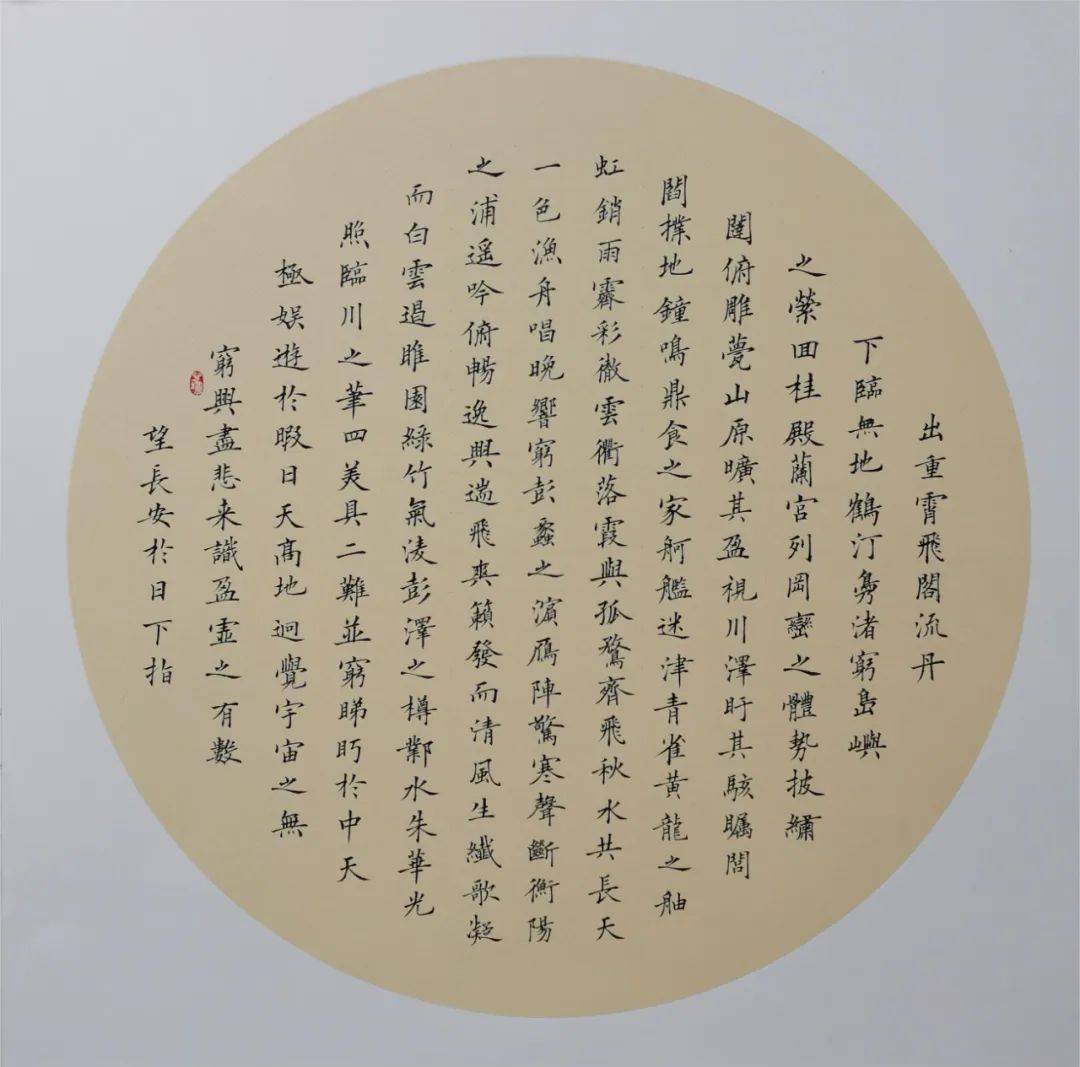 出重霄飛閣流丹
下臨無地鶴汀鳧渚窮島嶼
之縈回桂殿蘭宮列岡巒之體勢披繡
闥俯雕甍山原曠其盈視川澤盱其駭矚閭
閻撲地鐘鳴鼎食之家舸艦迷津青雀黃龍之舳
虹銷雨霽彩徹雲衢落霞與孤鶩齊飛秋水共長天
一色漁舟唱晚響窮彭蠡之濱鴈陣驚寒聲斷衡陽
之浦遥吟俯暢逸興遄飛爽籟發而清風生纖歌凝
而白雲遏睢園綠竹氣淩彭澤之樽鄴水朱華光
照臨川之筆四美具二難並窮睇眄於中天
極娛遊於暇日天髙地迥覺宇宙之無
窮興盡悲来識盈虛之有數
望長安於日下指